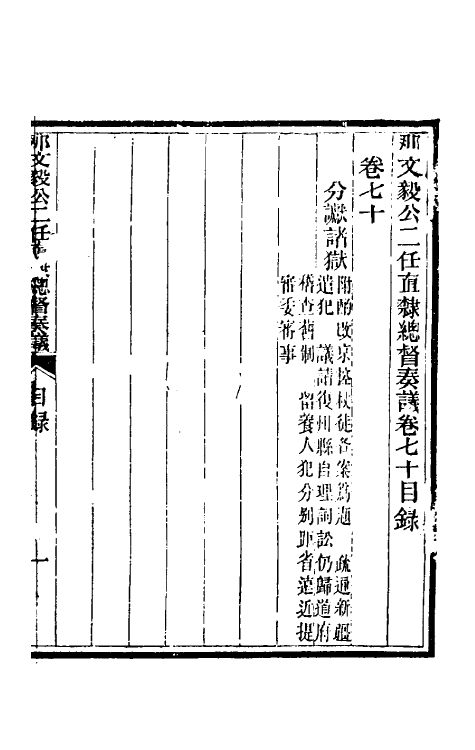 那文毅公二任直隸總督奏議卷七十目錄
卷七十
分讞諸獄
附酌改京控杖徒各案爲題　疏通新疆
遣犯　議請復州縣自理詞訟仍歸道府
稽查舊制　留養人犯分别距省遠近提
審委審事
那文毅公二任直隸總督奏議
目錄
一